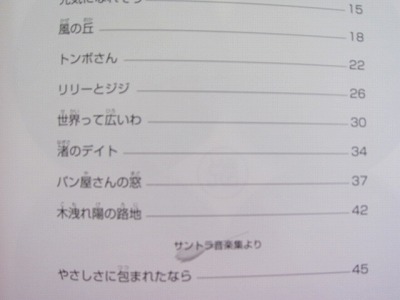 元気になれそう 15
風の丘 18
トンボさん 22
リリーとジジ 26
世界って広いわ 30
渚のデイト 34
パン屋さんの窓 37
木洩れ陽の路地 42
サントラ音楽集より
やさしさに包まれたなら 45